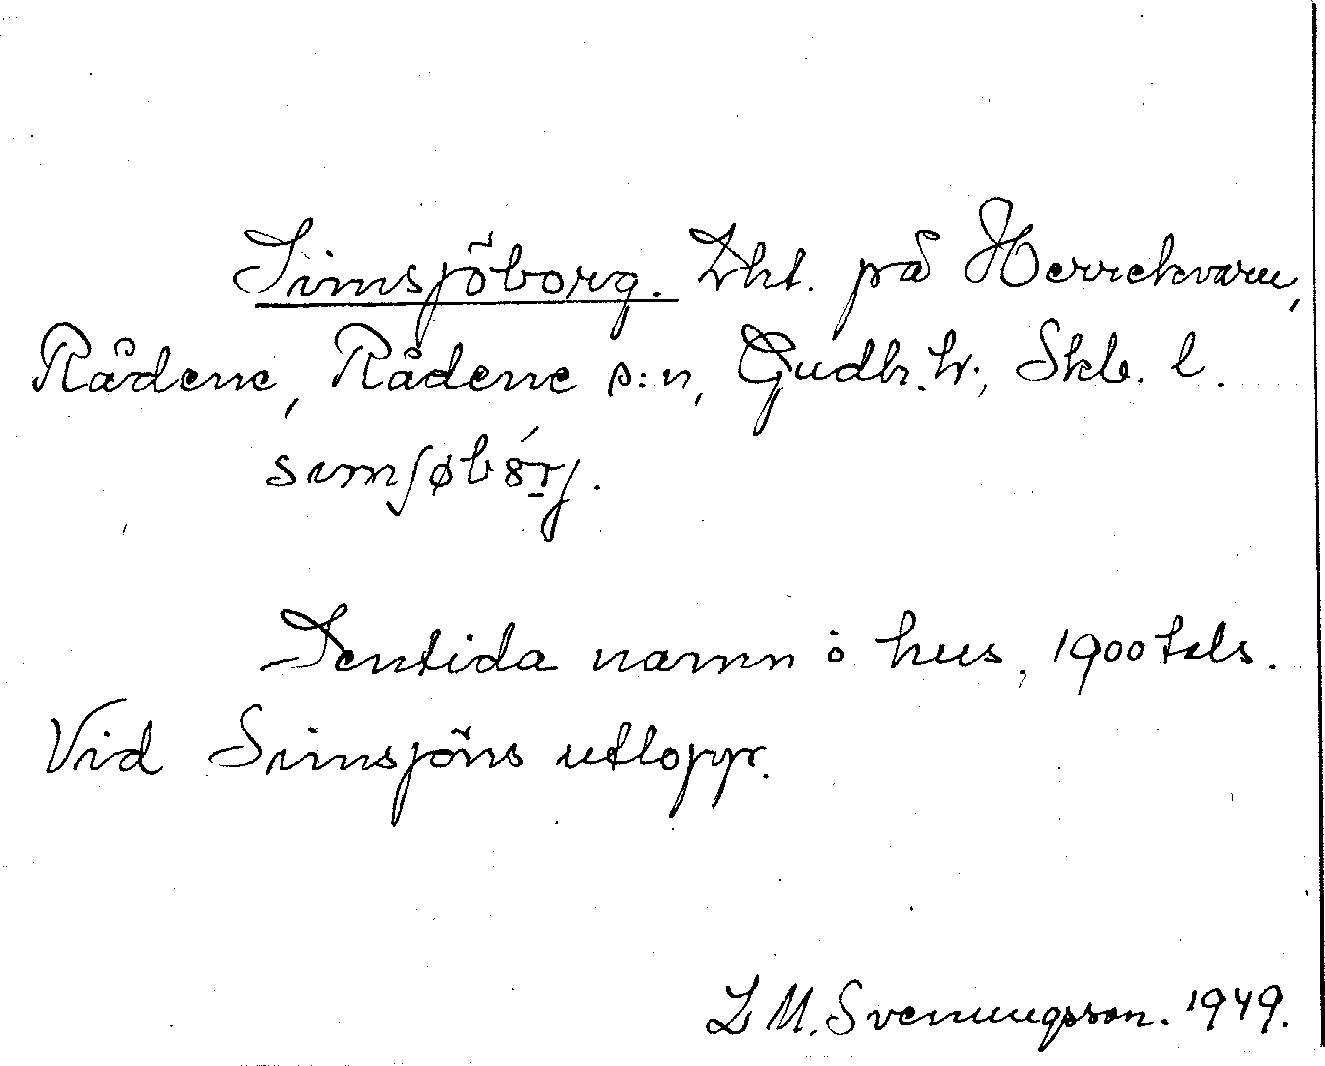 Simsjöborg. Lht. på Herrekvarn,
Rådene, Rådene s:n, Gudh. hr., Skb. l.
simʃøbórj.
Sentida namn å hus, 1900 tals.
Vid Simsjöns utlopp.
L M. Svenungsson. 1949.